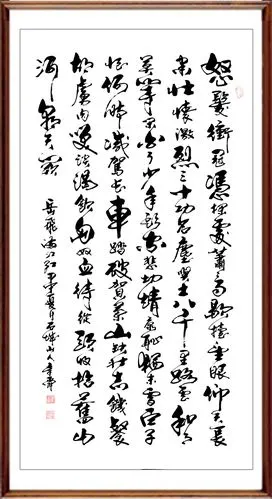 怒髮衝冠憑欄處蕭々雨歇抬望眼仰天長
嘯壯懷激烈三十功名塵與土八千里路雲和
月莫等閒白了少年頭空悲切靖康恥猶未雪臣子
恨何時滅駕長車踏破賀蘭山缺壯志飢餐
胡虜肉笑談渴飲匈奴血待從頭收拾舊山
河朝天闕
岳飛滿江紅 夏月石城山人